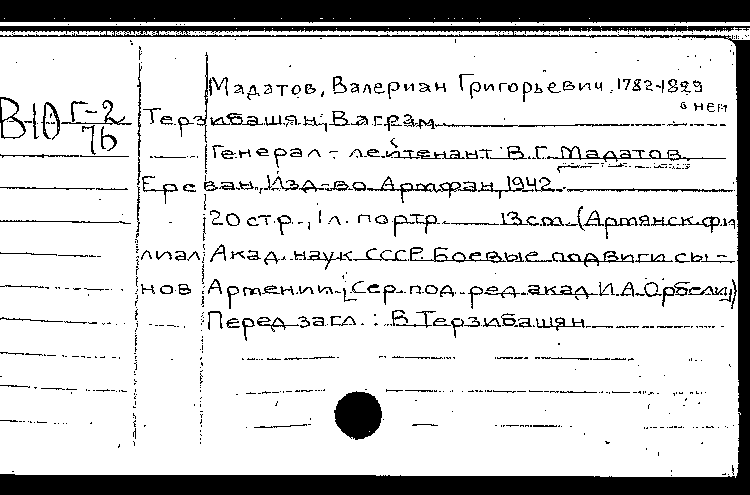 Мадатов, Валериан Григорьевич, 1782-1829
о нем
В-10 Г-2/76
Терзибашян, Ваграм
Генерал-лейтенант В.Г. Мадатов.
Ереван, Изд-во Армфан, 1942.
20 стр., 1 л. портр. 13 cm. (Армянск. фи
лиал Акад. наук СССР. Боевые подвиги сы-
нов Армении; [Сер. под ред. акад. И.А. Орбели])
Перед загл.: В. Терзибашян